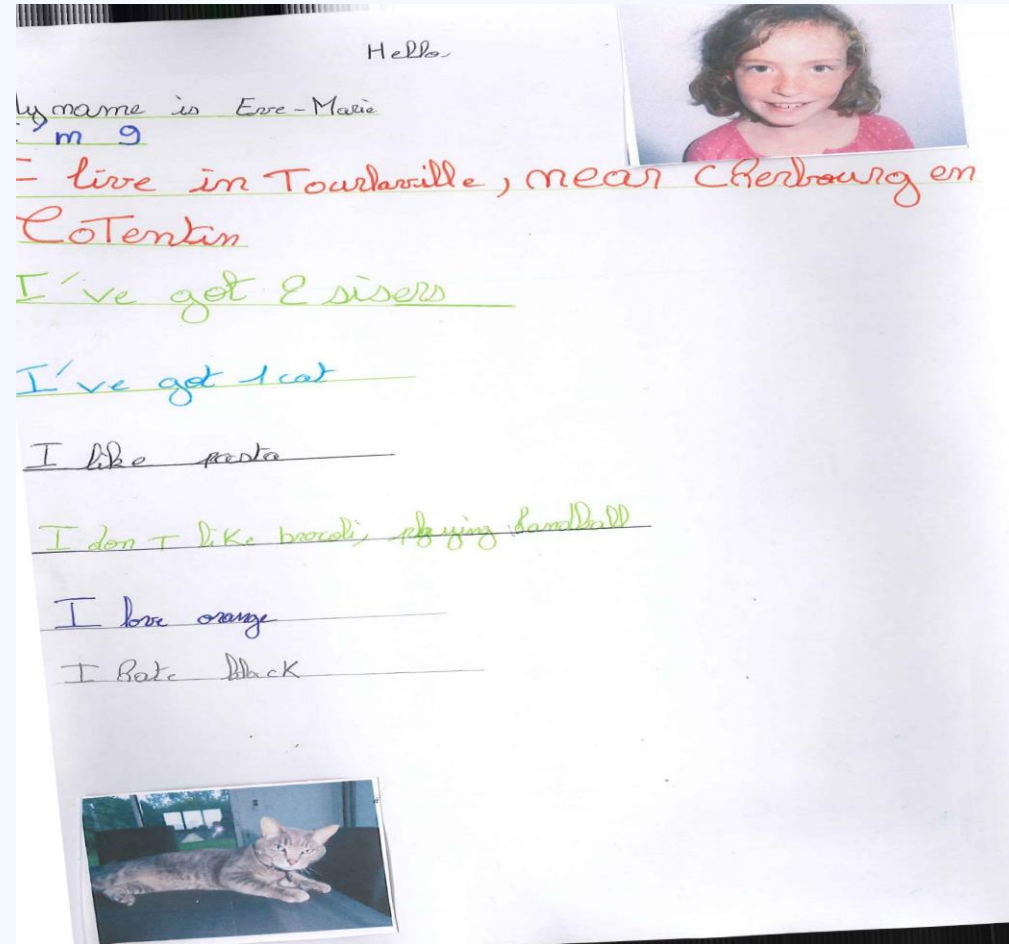 Hello
y name is Eve-Marie
'm 9
I live in Tourlaville, near cherbourg en
CoTentin
I've got 2 sisers
I've got 1 cat
I like pasta
I don T like brocoli, playing handball
I love orange
I hate black